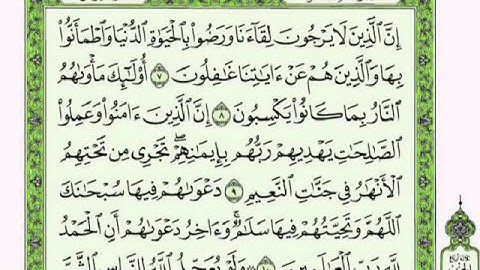 إِنَّ ٱلَّذِينَ لَا يَرۡجُونَ لِقَآءَنَا وَرَضُواْ بِٱلۡحَيَوٰةِ ٱلدُّنۡيَا وَٱطۡمَأَنُّواْ
بِهَا وَٱلَّذِينَ هُمۡ عَنۡ ءَايَٰتِنَا غَٰفِلُونَ ٧ أُوْلَٰٓئِكَ مَأۡوَىٰهُمُ
ٱلنَّارُ بِمَا كَانُواْ يَكۡسِبُونَ ٨ إِنَّ ٱلَّذِينَ ءَامَنُواْ وَعَمِلُواْ
ٱلصَّٰلِحَٰتِ يَهۡدِيهِمۡ رَبُّهُم بِإِيمَٰنِهِمۡۖ تَجۡرِي مِن تَحۡتِهِمُ
ٱلۡأَنۡهَٰرُ فِي جَنَّٰتِ ٱلنَّعِيمِ ٩ دَعۡوَىٰهُمۡ فِيهَا سُبۡحَٰنَكَ
ٱللَّهُمَّ وَتَحِيَّتُهُمۡ فِيهَا سَلَٰمٞۚ وَءَاخِرُ دَعۡوَىٰهُمۡ أَنِ ٱلۡحَمۡدُ
لِلَّهِ رَبِّ ٱلۡعَٰلَمِينَ ١٠ وَلَوۡ يُعَجِّلُ ٱللَّهُ لِلنَّاسِ ٱلشَّرَّ